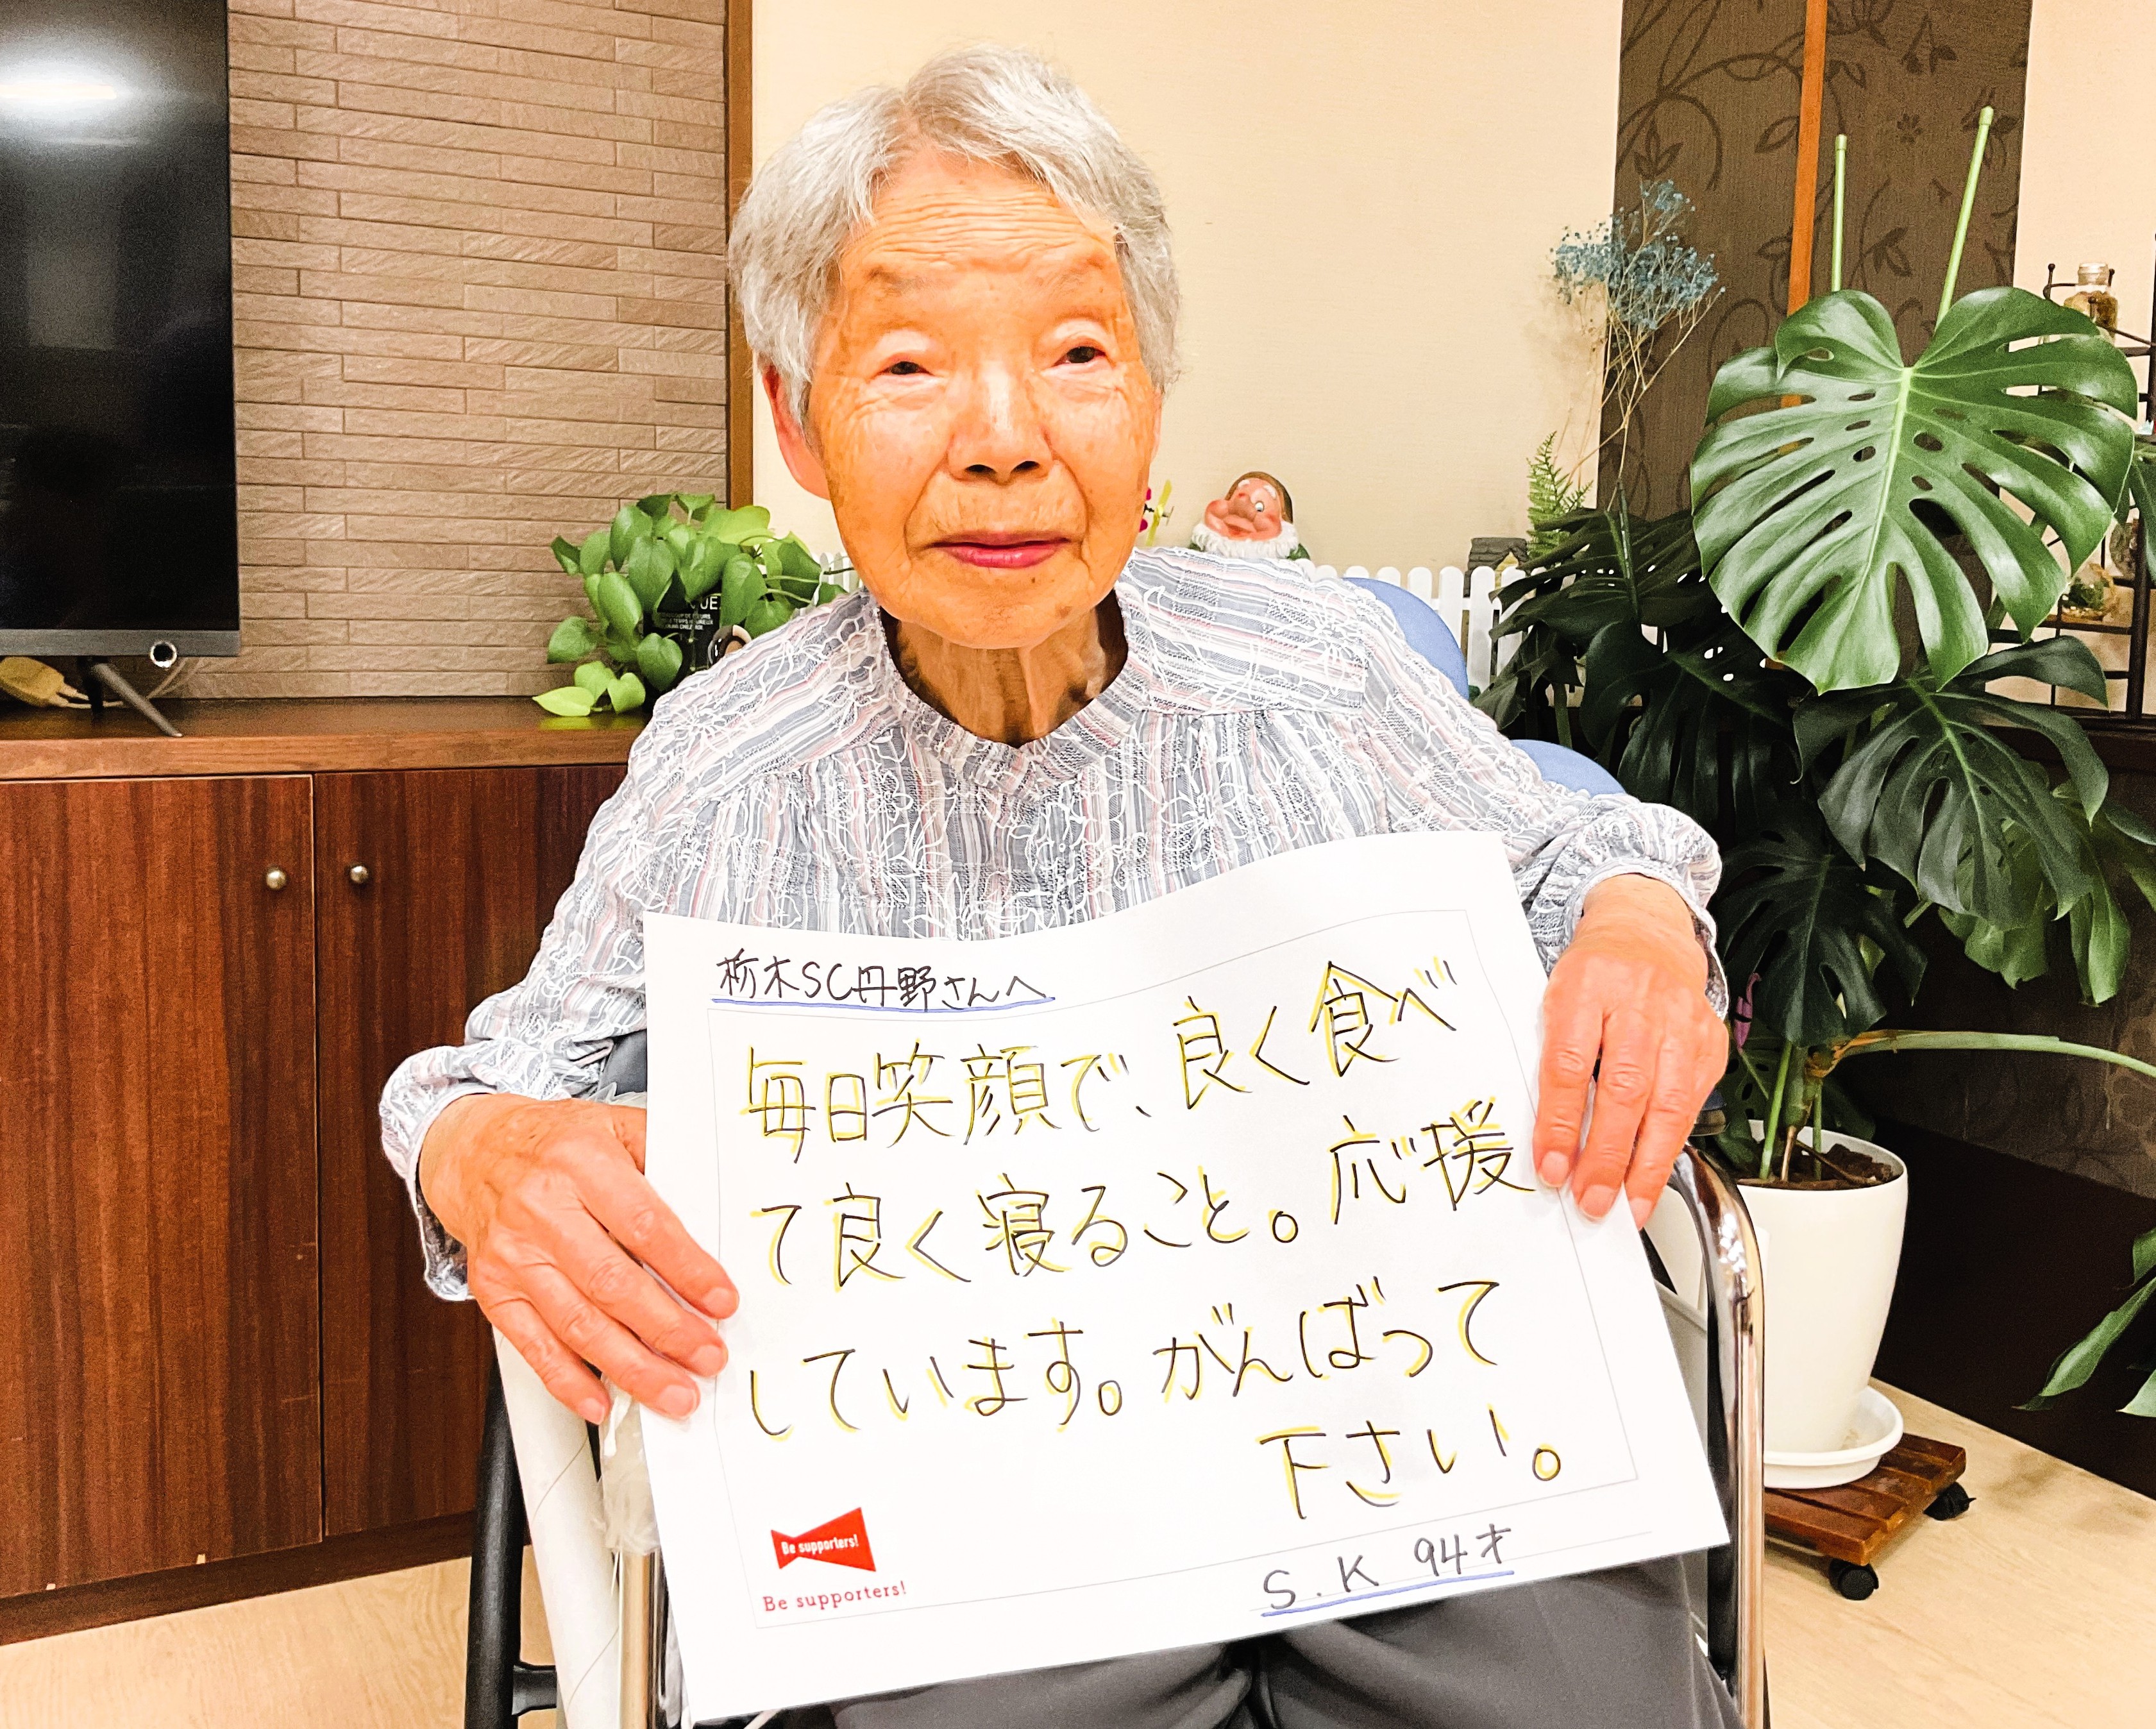 栃木SC丹野さんへ
毎日笑顔で、良く食べ
て良く寝ること。応援
しています。がんばって
下さい。
Be supporters!
Be supporters!
S.K 94才